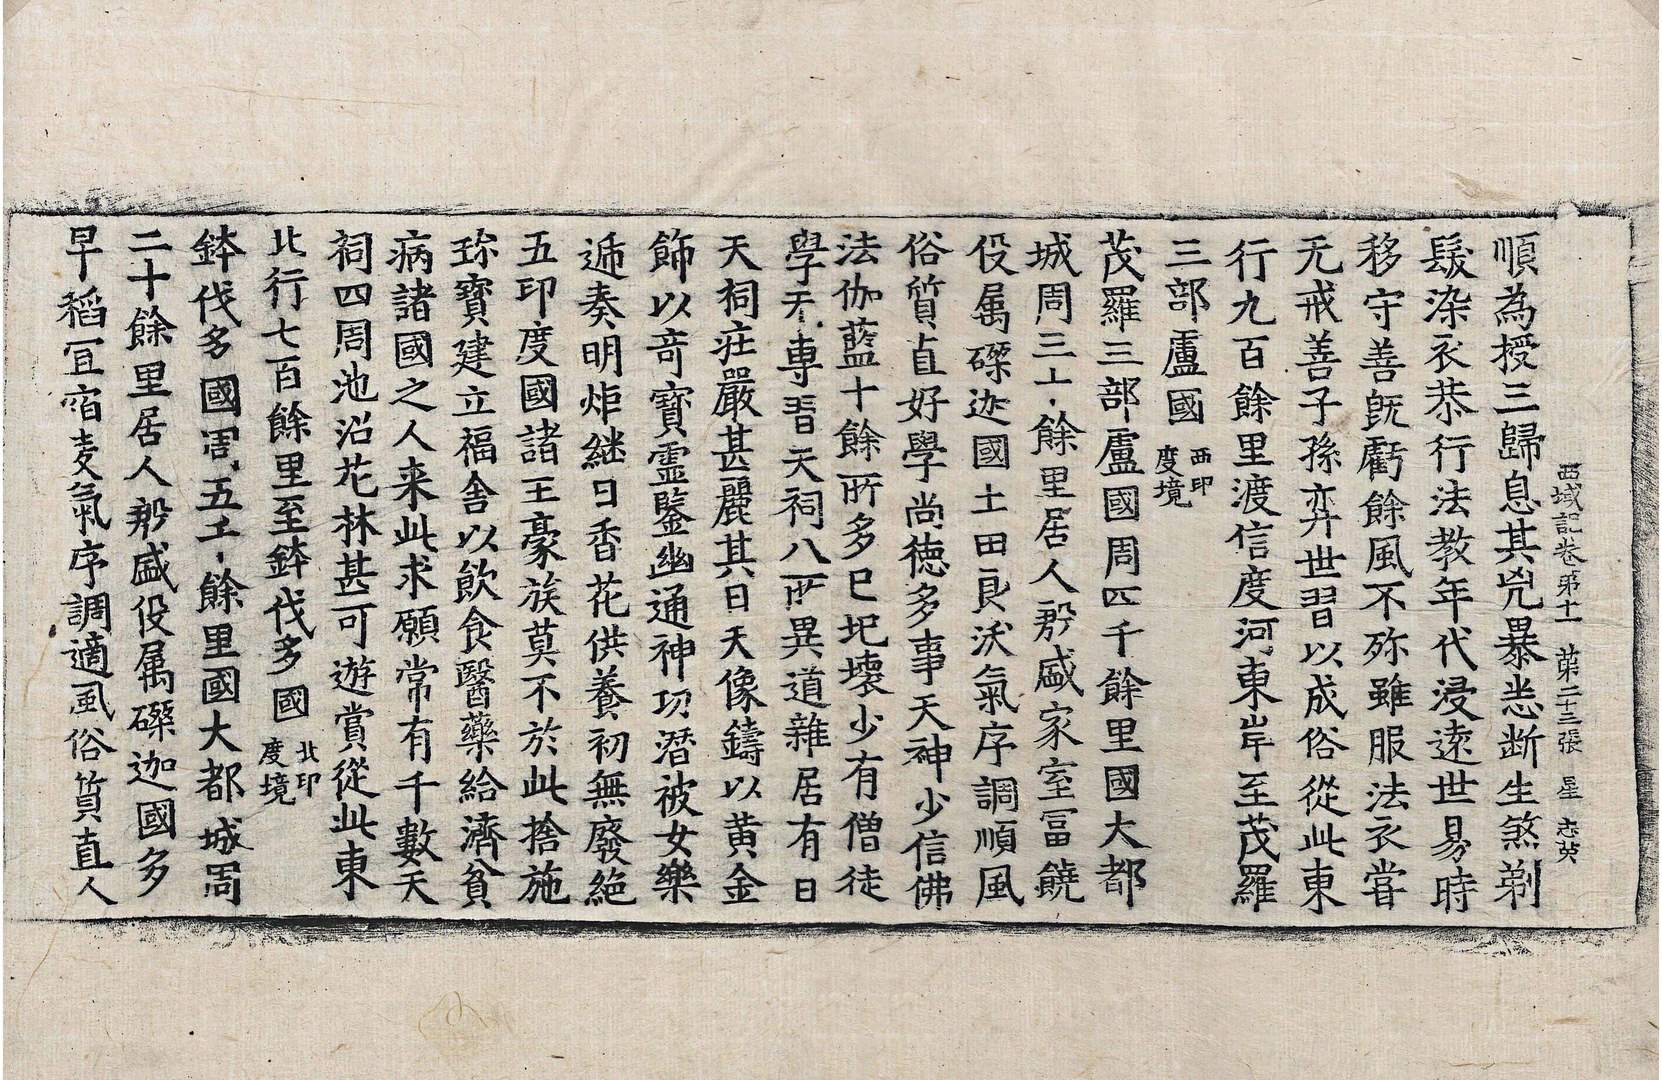 西域記卷第十一 第二十三張 星 志英
順為授三歸息其兇暴悉断生煞剃
髮染衣恭行法教年代浸遠世易時
移守善旣虧餘風不殄雖服法衣嘗
无戒善子孫弈世習以成俗從此東
行九百餘里渡信度河東岸至茂羅
三部盧國 西印度境
茂羅三部盧國周四千餘里國大都
城周三十餘里居人殷盛家室冨饒
役属磔迦國土田良沃氣序調順風
俗質直好學尚德多事天神少信佛
法伽藍十餘所多已圮壞少有僧徒
學无專習天祠八所異道雜居有日
天祠莊嚴甚麗其日天像鑄以黄金
飾以奇寶靈鑒幽通神功潜被女樂
遞奏明炬継日香花供養初無廢絶
五印度國諸王豪族莫不於此捨施
珎寶建立福舎以飲食醫藥給濟貧
病諸國之人来此求願常有千數天
祠四周池沼花林甚可遊賞從此東
北行七百餘里至鉢伐多國 北印度境
鉢伐多國周五千餘里國大都城周
二十餘里居人殷盛役属磔迦國多
旱稻冝宿麦氣序調適風俗質直人